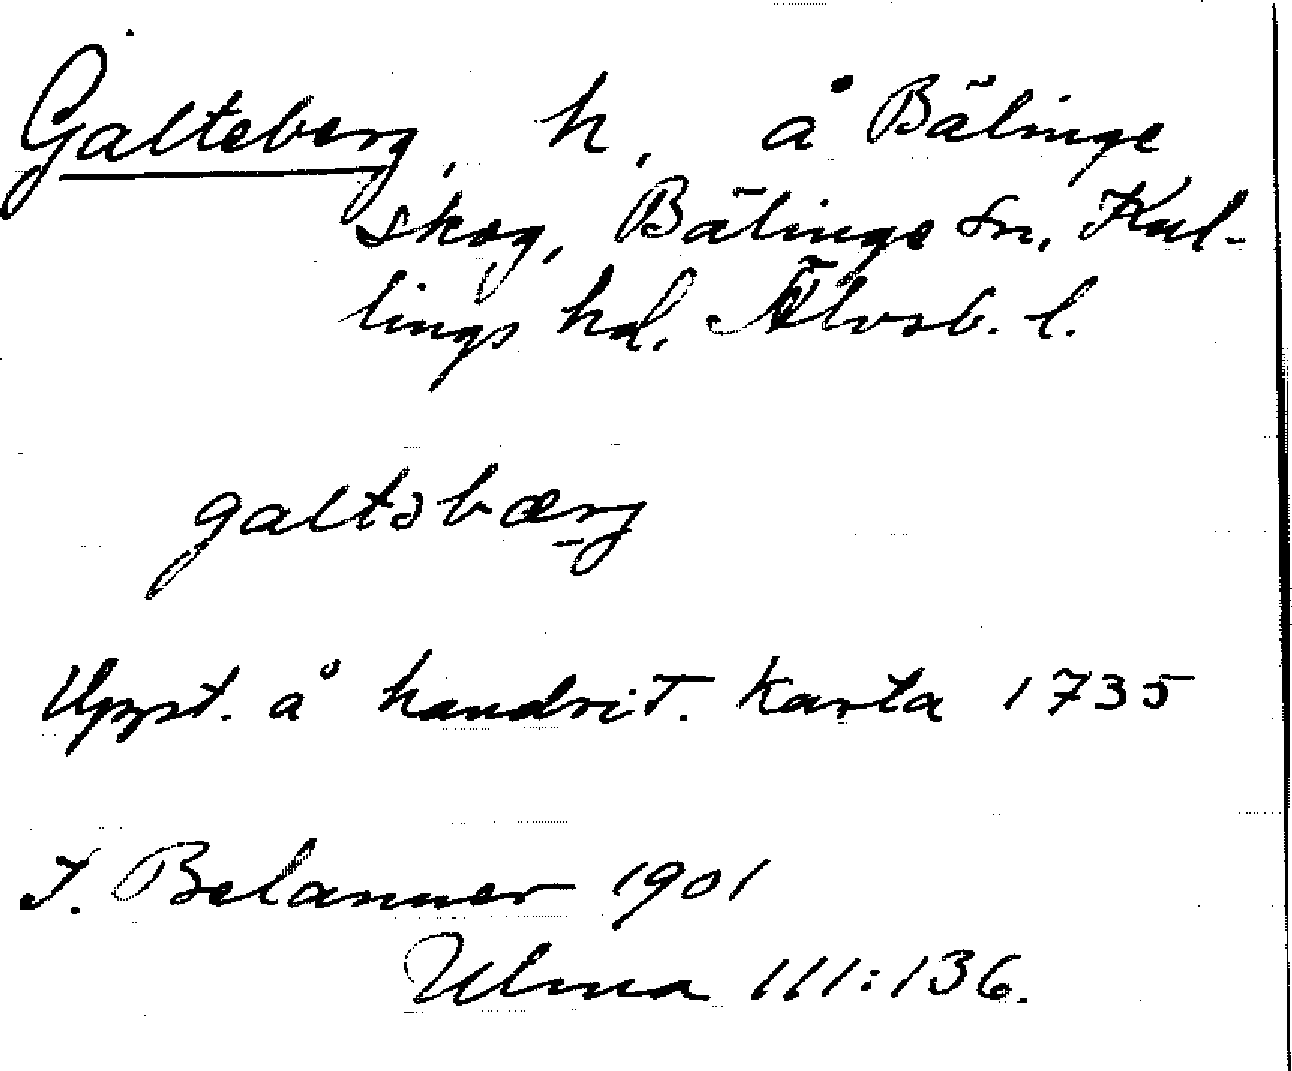 Galteberg, h, å Bälinge
skog, Bälinge sn, Kul-
lings hd, Älvsb. l.
galtəbærg
Uppt. å handrit. karta 1735
I. Belanner 1901
Ulma 111:136.